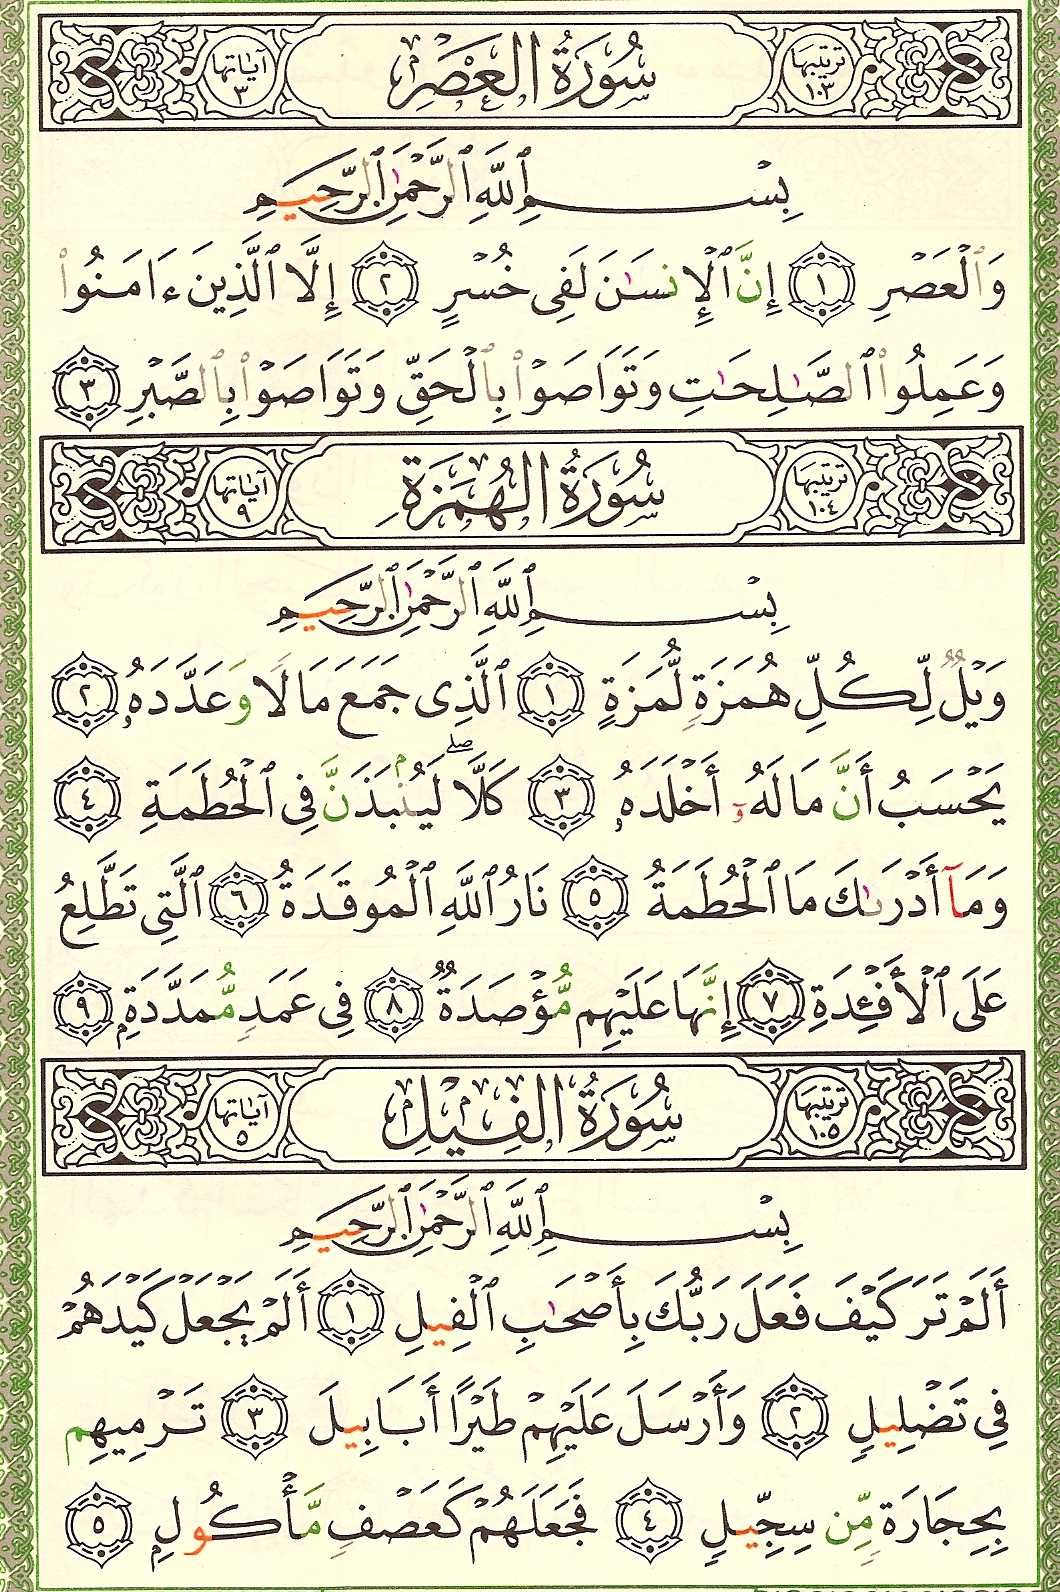 ترتيبها ١٠٣ سُورَةُ العَصْرِ آيَاتها ٣
بِسْمِ ٱللَّهِ ٱلرَّحْمَٰنِ ٱلرَّحِيمِ
وَٱلْعَصْرِ ١ إِنَّ ٱلْإِنسَٰنَ لَفِى خُسْرٍ ٢ إِلَّا ٱلَّذِينَ ءَامَنُوا۟
وَعَمِلُوا۟ ٱلصَّٰلِحَٰتِ وَتَوَاصَوْا۟ بِٱلْحَقِّ وَتَوَاصَوْا۟ بِٱلصَّبْرِ ٣
ترتيبها ١٠٤ سُورَةُ الهُمَزَةِ آيَاتها ٩
بِسْمِ ٱللَّهِ ٱلرَّحْمَٰنِ ٱلرَّحِيمِ
وَيْلٌ لِّكُلِّ هُمَزَةٍ لُّمَزَةٍ ١ ٱلَّذِى جَمَعَ مَالًا وَعَدَّدَهُۥ ٢
يَحْسَبُ أَنَّ مَالَهُۥٓ أَخْلَدَهُۥ ٣ كَلَّا ۖ لَيُنۢبَذَنَّ فِى ٱلْحُطَمَةِ ٤
وَمَآ أَدْرَىٰكَ مَا ٱلْحُطَمَةُ ٥ نَارُ ٱللَّهِ ٱلْمُوقَدَةُ ٦ ٱلَّتِى تَطَّلِعُ
عَلَى ٱلْأَفْـِٔدَةِ ٧ إِنَّهَا عَلَيْهِم مُّؤْصَدَةٌ ٨ فِى عَمَدٍ مُّمَدَّدَةٍۭ ٩
ترتيبها ١٠٥ سُورَةُ الفِيلِ آيَاتها ٥
بِسْمِ ٱللَّهِ ٱلرَّحْمَٰنِ ٱلرَّحِيمِ
أَلَمْ تَرَ كَيْفَ فَعَلَ رَبُّكَ بِأَصْحَٰبِ ٱلْفِيلِ ١ أَلَمْ يَجْعَلْ كَيْدَهُمْ
فِى تَضْلِيلٍ ٢ وَأَرْسَلَ عَلَيْهِمْ طَيْرًا أَبَابِيلَ ٣ تَرْمِيهِم
بِحِجَارَةٍ مِّن سِجِّيلٍ ٤ فَجَعَلَهُمْ كَعَصْفٍ مَّأْكُولٍۭ ٥